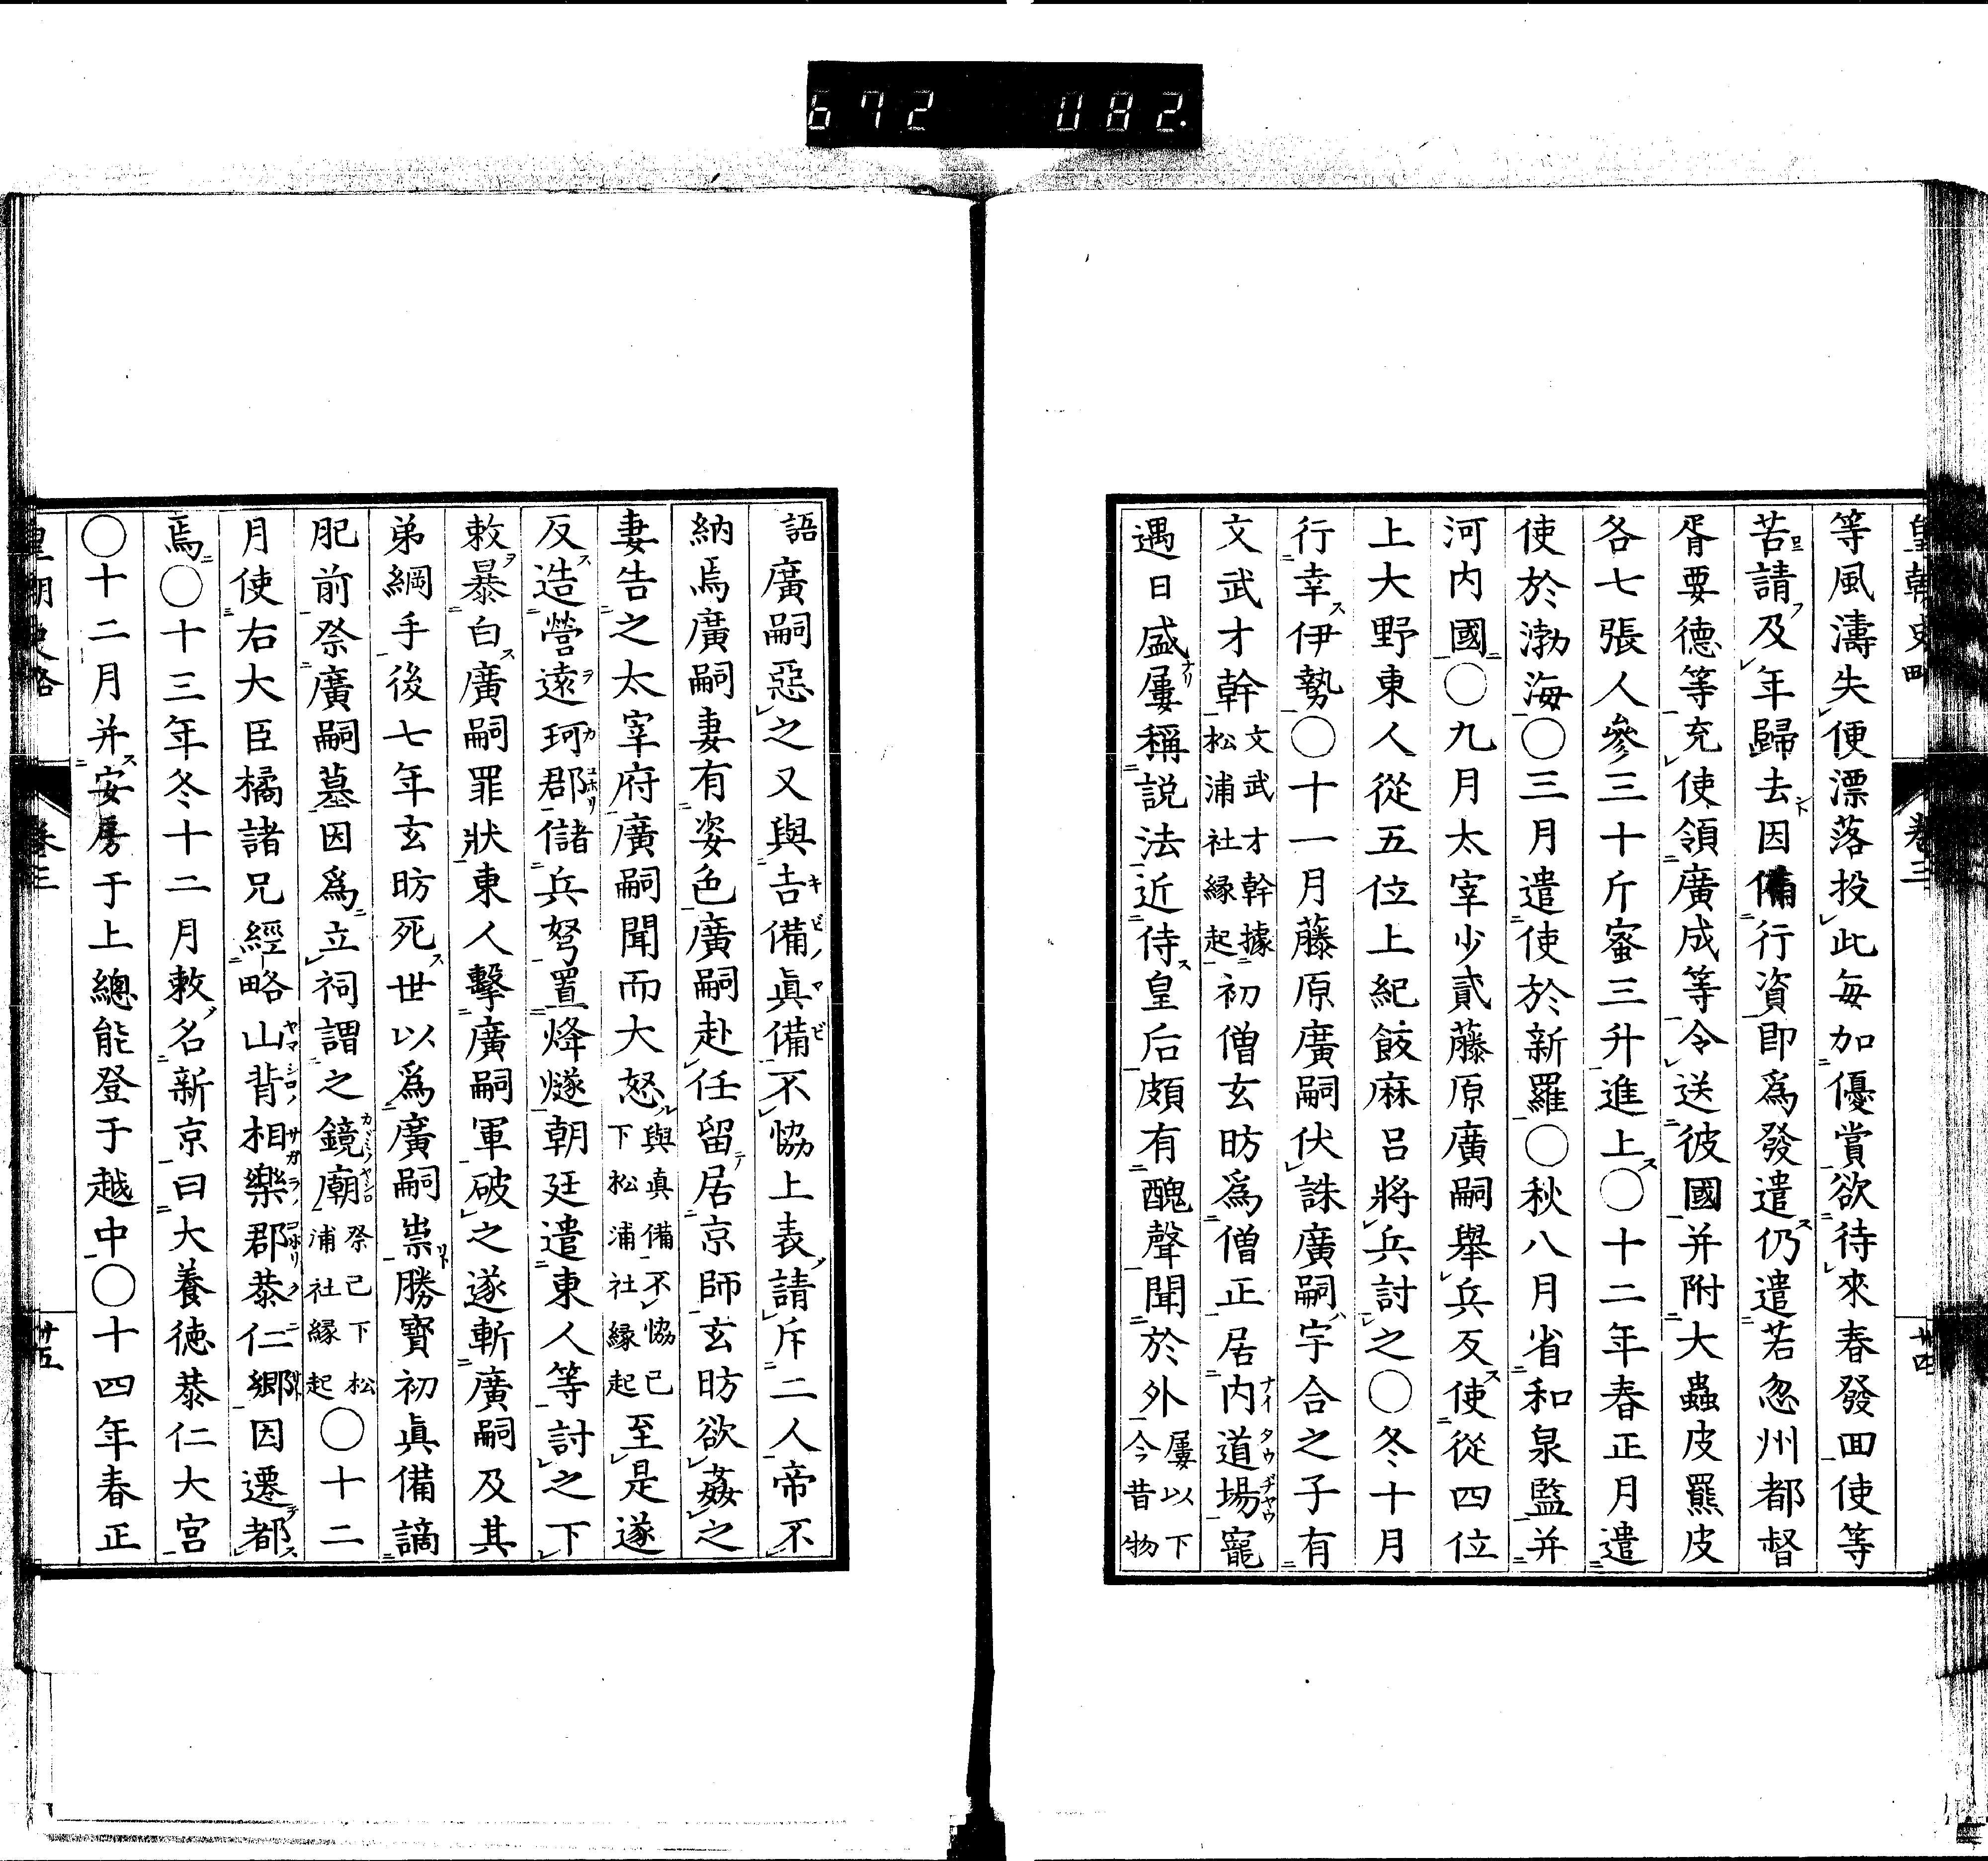 672 082
皇朝史略 卷三 廿四
等風濤失便漂落投此每加優賞欲待來春發回使等
苦請及年歸去因備行資即爲發遣仍遣若忽州都督
胥要德等充使領廣成等令送彼國并附大蟲皮羆皮
各七張人參三十斤蜜三升進上○十二年春正月遣
使於渤海○三月遣使於新羅○秋八月省和泉監并
河內國○九月太宰少貳藤原廣嗣舉兵反使從四位
上大野東人從五位上紀飯麻呂將兵討之○冬十月
行幸伊勢○十一月藤原廣嗣伏誅廣嗣宇合之子有
文武才幹文武才幹據松浦社縁起初僧玄昉爲僧正居內道場寵
遇日盛屢稱説法近侍皇后頗有醜聲聞於外屢以下今昔物
語廣嗣惡之又與吉備眞備不恊上表請斥二人帝不
納焉廣嗣妻有姿色廣嗣赴任留居京師玄昉欲姦之
妻告之太宰府廣嗣聞而大怒與眞備不恊已下松浦社縁起至是遂
反造營遠珂郡儲兵弩置烽燧朝廷遣東人等討之下
敕暴白廣嗣罪狀東人擊廣嗣軍破之遂斬廣嗣及其
弟綱手後七年玄昉死世以爲廣嗣祟勝寶初眞備謫
肥前祭廣嗣墓因爲立祠謂之鏡廟祭已下松浦社縁起○十二
月使右大臣橘諸兄經略山背相樂郡恭仁鄉因遷都
焉○十三年冬十二月敕名新京曰大養徳恭仁大宮
○十二月并安房于上總能登于越中○十四年春正
皇朝史略 卷三 廿五